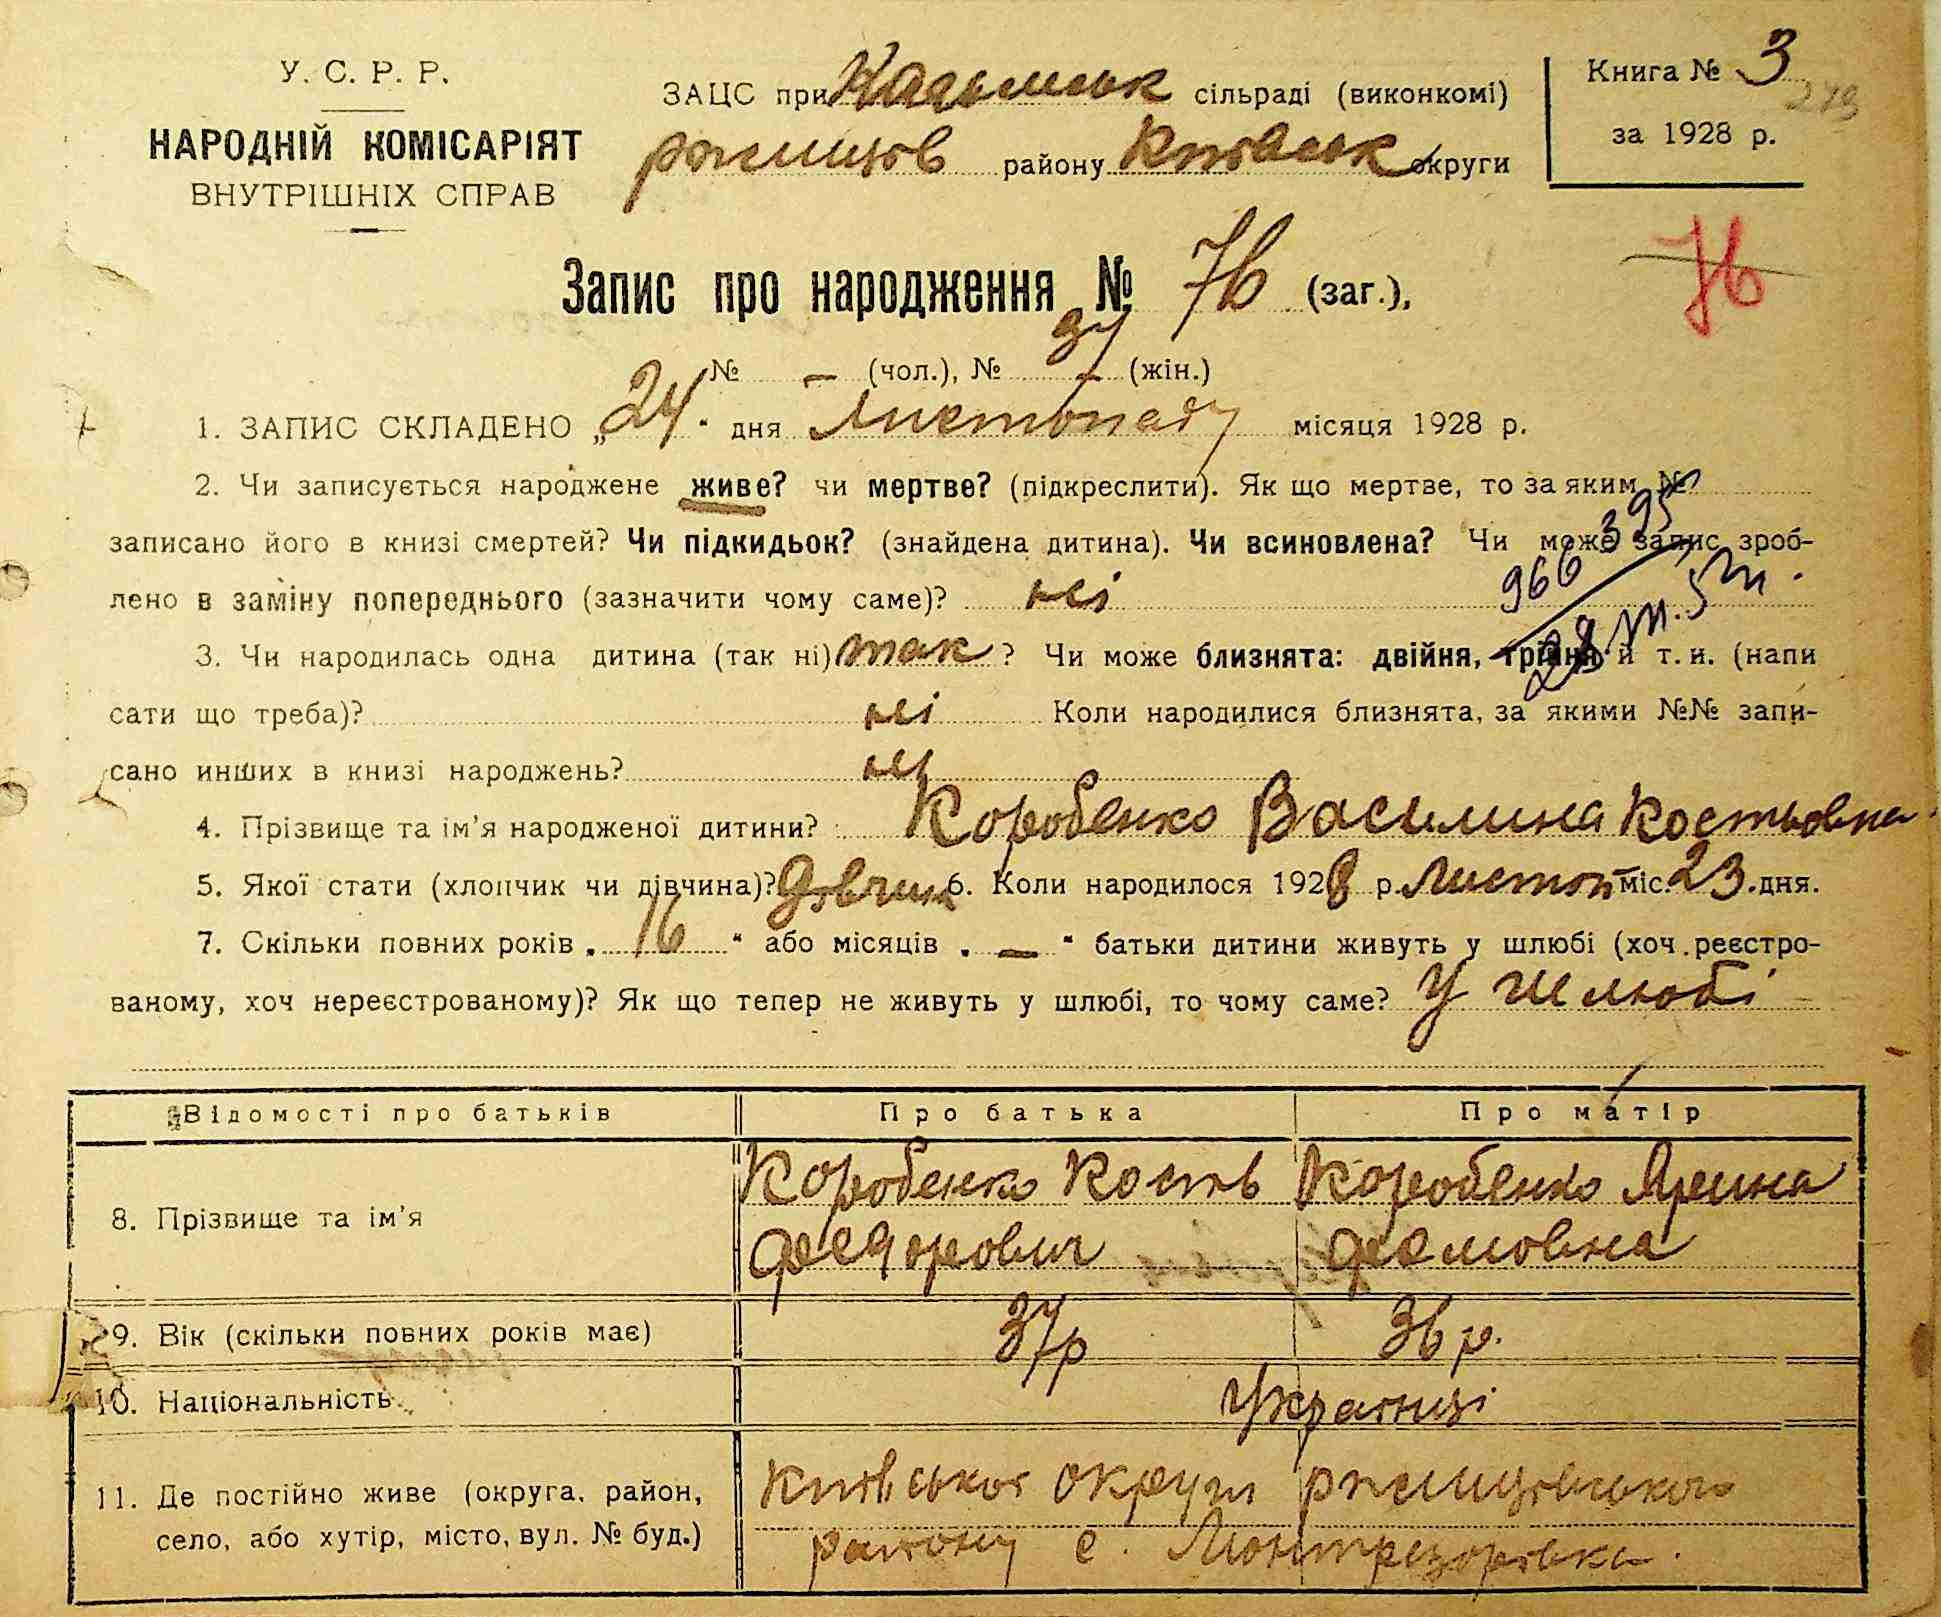 У. С. Р. Р.
НАРОДНІЙ КОМІСАРІЯТ
ВНУТРІШНІХ СПРАВ
ЗАЦС при сільраді (виконкомі)
ржищів району Київськ округи
Книга № 3
за 1928 р.
76
Запис про народження № 76 (заг.),
№ – (чол.), № 37 (жін.)
1. ЗАПИС СКЛАДЕНО „24" дня Листопаду місяця 1928 р.
2. Чи записується народжене живе? чи мертве? (підкреслити). Як що мертве, то за яким №
записано його в книзі смертей? Чи підкидьок? (знайдена дитина). Чи всиновлена? Чи може запис зроб-
лено в заміну попереднього (зазначити чому саме)? ні
3. Чи народилась одна дитина (так ні) так ? Чи може близнята: двійня, трійня й т. и. (напи
сати що треба)? ні Коли народилися близнята, за якими №№ запи-
сано инших в книзі народжень? ні
4. Прізвище та ім'я народженої дитини? Коробенко Василина Костьовна
5. Якої стати (хлопчик чи дівчина)? Дівчина 6. Коли народилося 1928 р. Листоп міс. 23 дня.
7. Скільки повних років „ 16 " або місяців „ – " батьки дитини живуть у шлюбі (хоч реєстро-
ваному, хоч нереєстрованому)? Як що тепер не живуть у шлюбі, то чому саме? У шлюбі
Відомості про батьків Про батька Про матір
8. Прізвище та ім'я Коробенко Кость Федорович Коробенко Ярина Фемовна
9. Вік (скільки повних років має) 37р 36 р.
10. Національність Українці
11. Де постійно живе (округа, район,
село, або хутір, місто, вул. № буд.)
Київської округи ржищівського
району с. Монтрезорівка.